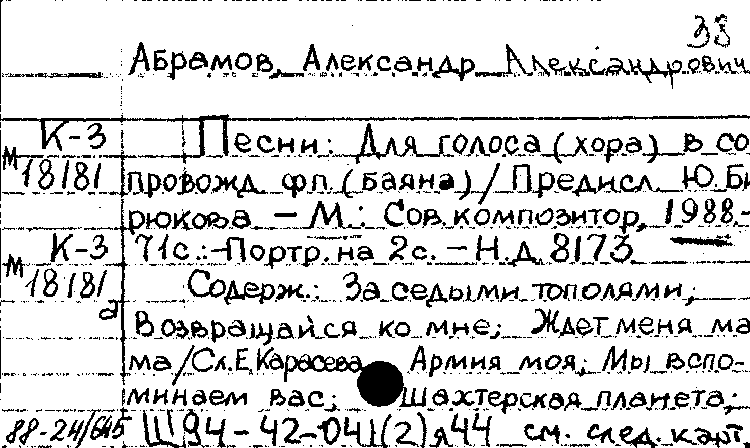 38
Абрамов, Александр Александрович
К-3 Песни: Для голоса (хора) в со
М 18181 провожд. фп. (баяна) / Предисл. Ю. Би
рюкова. - М.: Сов. композитор, 1988.-
К-3 71с.: Портр. на 2с. - Н.д. 8173
М 18181 Содерж.: За седыми тополями;
а Возвращайся ко мне; Ждет меня ма
ма / Сл. Е. Карасева. Армия моя; Мы вспо-
минаем вас; Шахтерская планета;
88-24/645 Щ94-42-041(2)я44 см. след. карт.